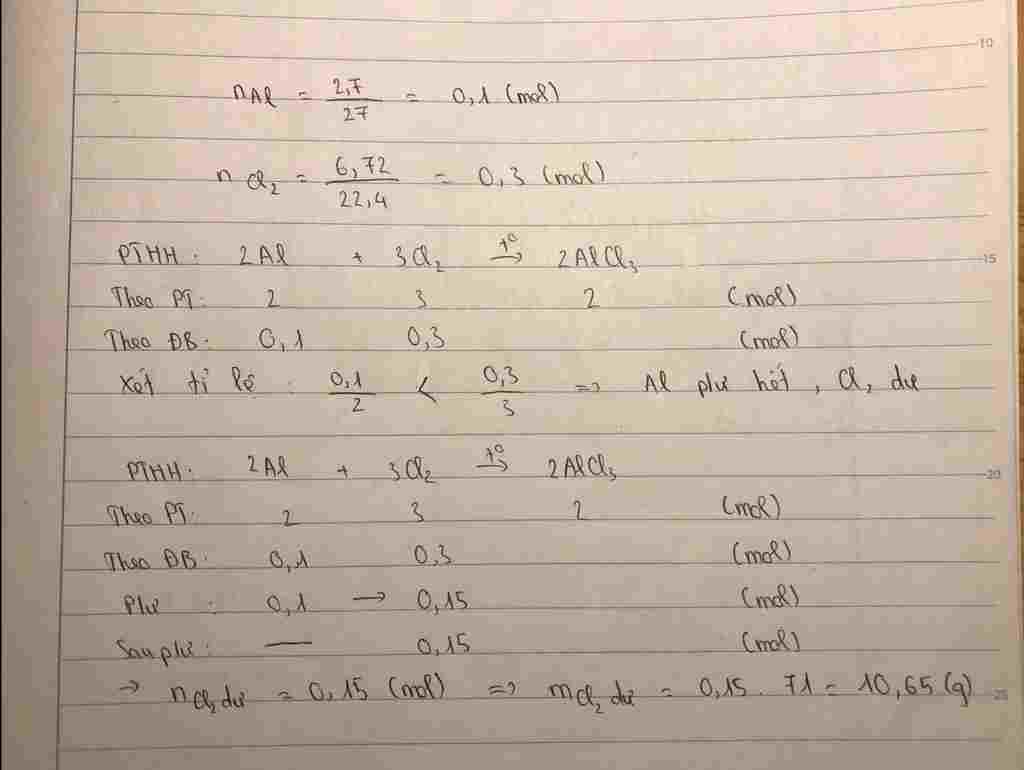 10
nAl = 2,7/27 = 0,1 (mol)
nCl₂ = 6,72/22,4 = 0,3 (mol)
PTHH: 2Al + 3Cl₂ t°→ 2AlCl₃ 15
Theo PT: 2 3 2 (mol)
Theo ĐB: 0,1 0,3 (mol)
Xét tỉ lệ: 0,1/2 < 0,3/3 => Al pư hết, Cl₂ dư
PTHH: 2Al + 3Cl₂ t°→ 2AlCl₃ 20
Theo PT: 2 3 2 (mol)
Theo ĐB: 0,1 0,3 (mol)
Pư : 0,1 → 0,15 (mol)
Sau pư: — 0,15 (mol)
→ nCl₂ dư = 0,15 (mol) => mCl₂ dư = 0,15 . 71 = 10,65 (g) 25